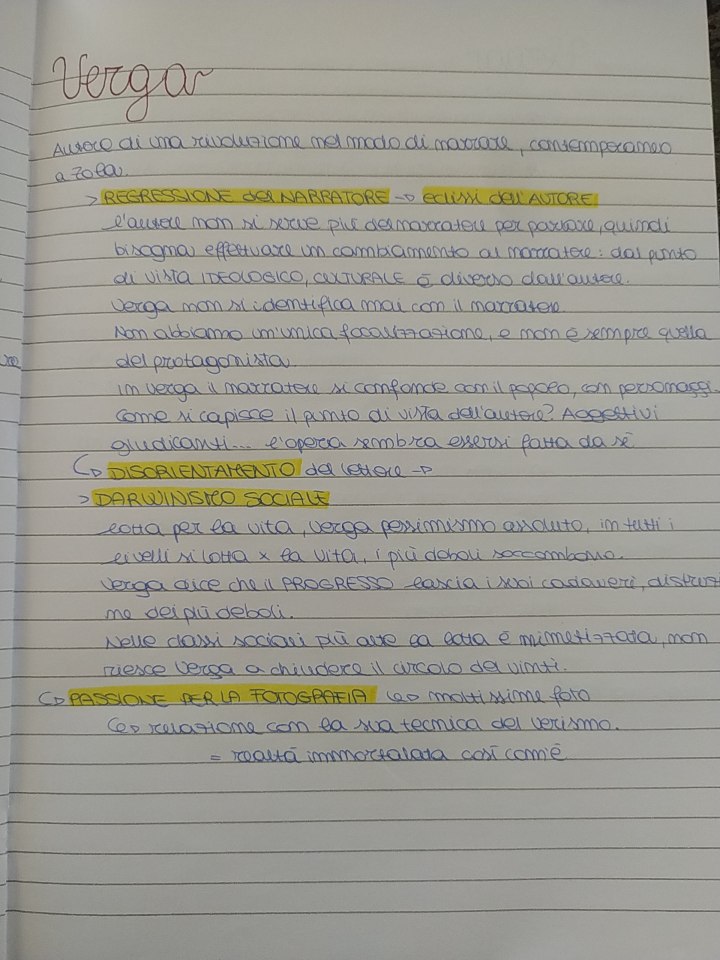 Verga
Autore di una rivoluzione nel modo di narrare, contemporaneo
a Zola.
> REGRESSIONE del NARRATORE → eclissi dell'AUTORE
l'autore non si serve più del narratore per parlare, quindi
bisogna effettuare un cambiamento al narratore: dal punto
di vista IDEOLOGICO, CULTURALE È diverso dall'autore.
Verga non si identifica mai con il narratore.
Non abbiamo un'unica focalizzazione, e non è sempre quella
del protagonista.
In Verga il narratore si confonde con il popolo, con personaggi.
Come si capisce il punto di vista dell'autore? Aggettivi
giudicanti... l'opera sembra essersi fatta da sé
↳ DISORIENTAMENTO del lettore →
> DARWINISMO SOCIALE
lotta per la vita, Verga pessimismo assoluto, in tutti i
livelli si lotta x la vita, i più deboli soccombono.
Verga dice che il PROGRESSO lascia i suoi cadaveri, distruzi
ne dei più deboli.
Nelle classi sociali più alte la lotta è mimetizzata, non
riesce Verga a chiudere il circolo dei vinti.
↳ PASSIONE PER LA FOTOGRAFIA ↳ moltissime foto
↳ relazione con la sua tecnica del verismo.
= realtà immortalata così com'è